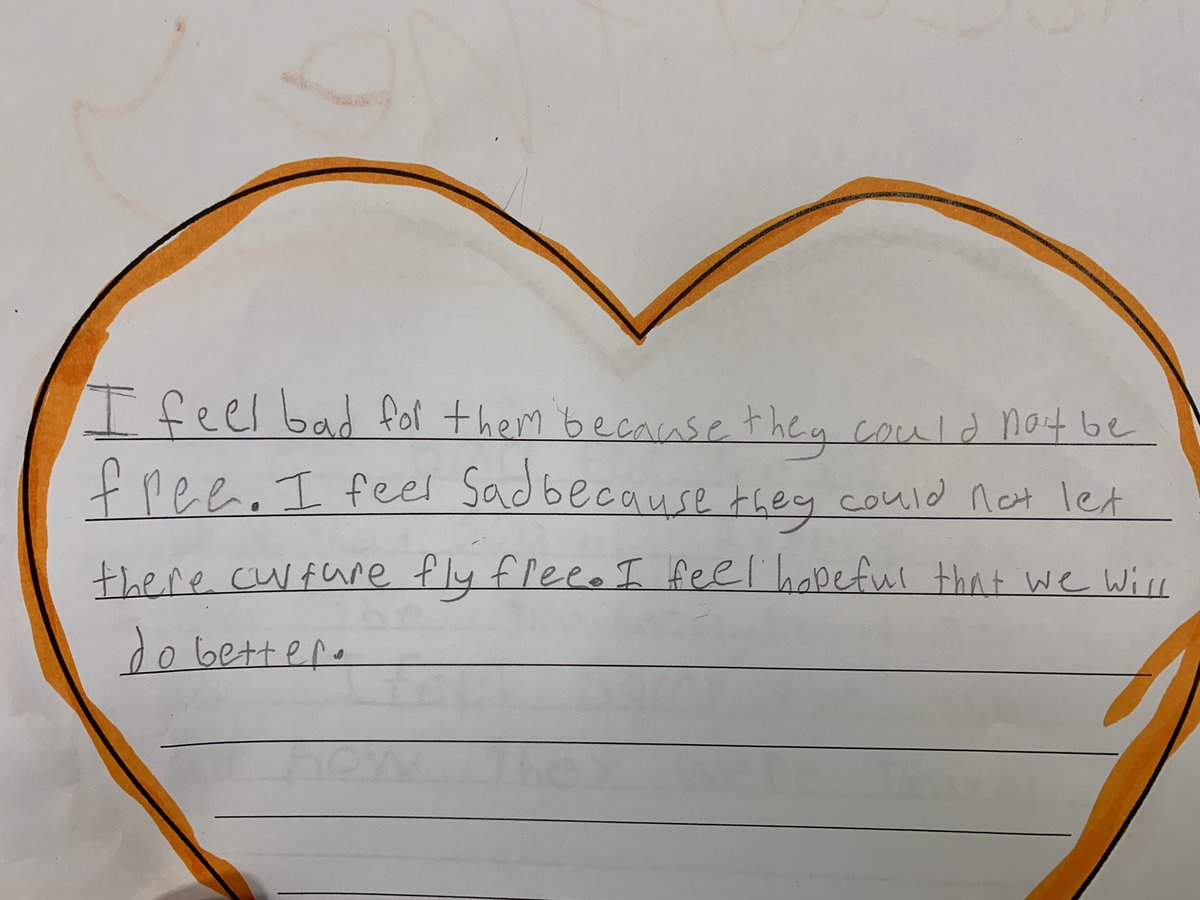 I feel bad for them because they could not be
free. I feel sad because they could not let
there culture fly free. I feel hopeful that we will
do better.